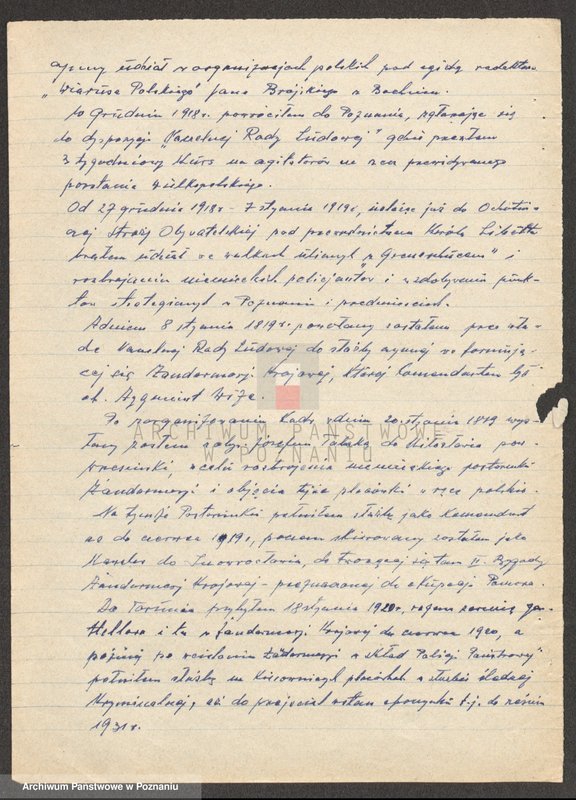 czynny udział w organizacjach polskich pod egidą redaktora
„Wiarusa Polskiego" Jana Brejskiego w Bochum.
W Grudniu 1918 r. powróciłem do Poznania, zgłaszając się
do dyspozycji „Naczelnej Rady Ludowej" gdzie przeszłem
3 tygodniowy kurs na agitatorów na rzecz przewidywanego
powstania wielkopolskiego.
Od 27 grudnia 1918 r. - 7 stycznia 1919 r, należąc już do Ochotni-
czej Straży Obywatelskiej pod przewodnictwem Karola Libelta
brałem udział w walkach ulicznych z „Grenszszucem" i
rozbrajaniu niemieckich policjantów i zdobywaniu punk-
tów strategicznych w Poznaniu i przedmieściach.
Z dniem 8 stycznia 1819 r. powołany zostałem przez wła-
dze Naczelnej Rady Ludowej do służby czynnej w formują-
cej się Żandarmerji Krajowej, której komendantem był
ob. Zygmunt Wiza.
Po zorganizowaniu Kadry dniem 20 stycznia 1819 wys-
łany zostałem do Miłosławia pow.
wrzesiński, w celu rozbrojenia niemieckiego posterunku
Żandarmerji i objęcia tejże placówki w ręce polskie.
Na tymże Posterunku pełniłem służbę jako Komendant
aż do czerwca 1919 r, poczem skierowany zostałem jako
do Inowrocławia, do tworzącej się tam II. Brygady
Żandarmerji Krajowej - przeznaczonej do okupacji Pomorza.
Do Torunia przybyłem 18 stycznia 1920 r, razem z armią gen.
Hellera i tu w żandarmerji Krajowej do czerwca 1920, a
później po wcieleniu Żandarmerji w skład Policji Państwowej
pełniłem służbę na kierowniczych placówkach w służbie śledczej
kryminalnej, aż do przejścia w stan spoczynku t.j. do
1931 r.
ARCHIWUM PAŃSTWOWE
W POZNANIU
Archiwum Państwowe w Poznaniu